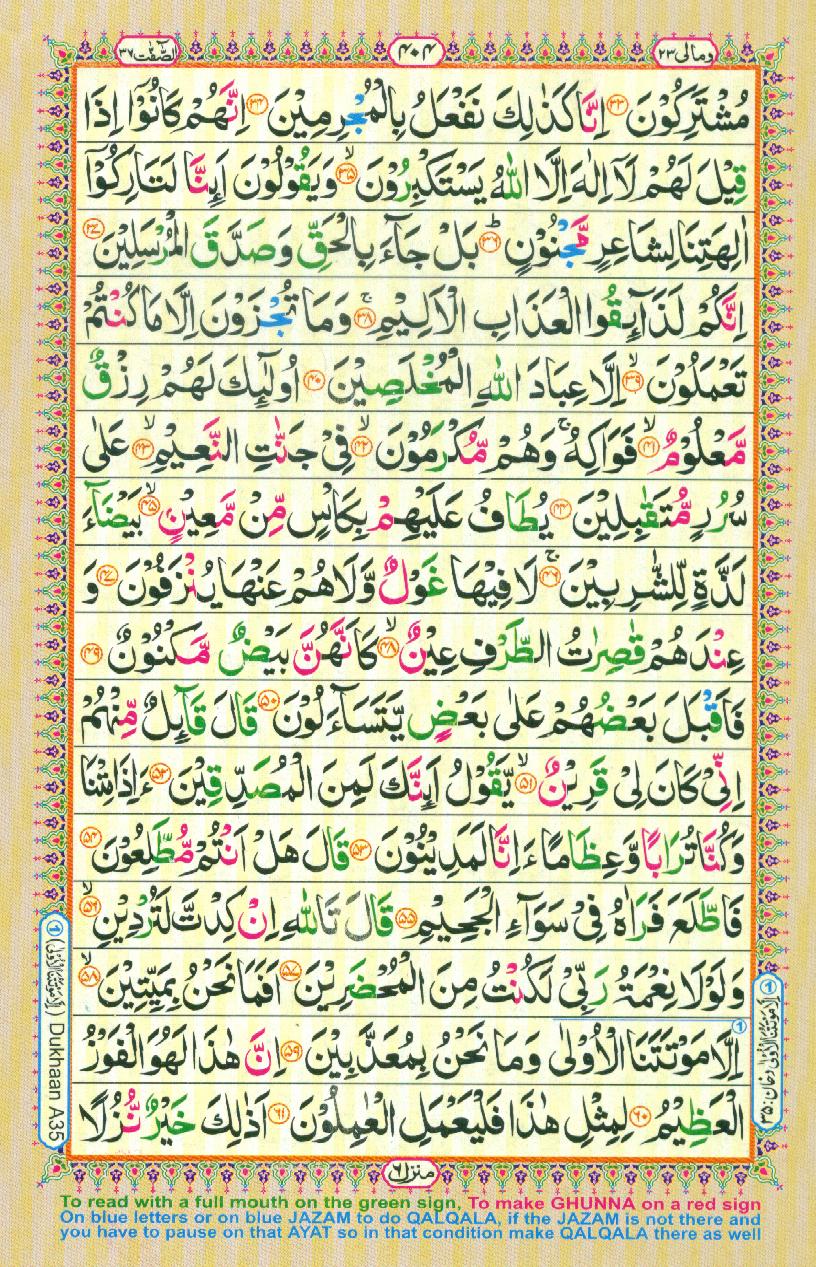 ومالی ۲۳
۴۰۴
الصّٰفّٰت ۳۷
مُشْتَرِكُوْنَ ۝۳۳ اِنَّا كَذٰلِكَ نَفْعَلُ بِالْمُجْرِمِيْنَ ۝۳۴ اِنَّهُمْ كَانُوْۤا اِذَا
قِيْلَ لَهُمْ لَاۤ اِلٰهَ اِلَّا اللّٰهُ يَسْتَكْبِرُوْنَ ۙ۝۳۵ وَيَقُوْلُوْنَ اَىِٕنَّا لَتَارِكُوْۤا
اٰلِهَتِنَا لِشَاعِرٍ مَّجْنُوْنٍ ؕ۝۳۶ بَلْ جَآءَ بِالْحَقِّ وَصَدَّقَ الْمُرْسَلِيْنَ ۝۳۷
اِنَّكُمْ لَذَآىِٕقُوا الْعَذَابِ الْاَلِيْمِ ۚ۝۳۸ وَمَا تُجْزَوْنَ اِلَّا مَا كُنْتُمْ
تَعْمَلُوْنَ ۙ۝۳۹ اِلَّا عِبَادَ اللّٰهِ الْمُخْلَصِيْنَ ۝۴۰ اُولٰٓىِٕكَ لَهُمْ رِزْقٌ
مَّعْلُوْمٌ ۙ۝۴۱ فَوَاكِهُ ۚ وَهُمْ مُّكْرَمُوْنَ ۙ۝۴۲ فِيْ جَنّٰتِ النَّعِيْمِ ۙ۝۴۳ عَلٰى
سُرُرٍ مُّتَقٰبِلِيْنَ ۝۴۴ يُطَافُ عَلَيْهِمْ بِكَاْسٍ مِّنْ مَّعِيْنٍۭ ۙ۝۴۵ بَيْضَآءَ
لَذَّةٍ لِّلشّٰرِبِيْنَ ۚ۝۴۶ لَا فِيْهَا غَوْلٌ وَّلَا هُمْ عَنْهَا يُنْزَفُوْنَ ۝۴۷ وَ
عِنْدَهُمْ قٰصِرٰتُ الطَّرْفِ عِيْنٌ ۙ۝۴۸ كَاَنَّهُنَّ بَيْضٌ مَّكْنُوْنٌ ۝۴۹
فَاَقْبَلَ بَعْضُهُمْ عَلٰى بَعْضٍ يَّتَسَآءَلُوْنَ ۝۵۰ قَالَ قَآىِٕلٌ مِّنْهُمْ
اِنِّيْ كَانَ لِيْ قَرِيْنٌ ۙ۝۵۱ يَّقُوْلُ اَىِٕنَّكَ لَمِنَ الْمُصَدِّقِيْنَ ۝۵۲ ءَاِذَا مِتْنَا
وَكُنَّا تُرَابًا وَّعِظَامًا ءَاِنَّا لَمَدِيْنُوْنَ ۝۵۳ قَالَ هَلْ اَنْتُمْ مُّطَّلِعُوْنَ ۝۵۴
فَاطَّلَعَ فَرَاٰهُ فِيْ سَوَآءِ الْجَحِيْمِ ۝۵۵ قَالَ تَاللّٰهِ اِنْ كِدْتَّ لَتُرْدِيْنِ ۙ۝۵۶
وَلَوْلَا نِعْمَةُ رَبِّيْ لَكُنْتُ مِنَ الْمُحْضَرِيْنَ ۝۵۷ اَفَمَا نَحْنُ بِمَيِّتِيْنَ ۙ۝۵۸
اِلَّا مَوْتَتَنَا الْاُوْلٰى وَمَا نَحْنُ بِمُعَذَّبِيْنَ ۝۵۹ اِنَّ هٰذَا لَهُوَ الْفَوْزُ
الْعَظِيْمُ ۝۶۰ لِمِثْلِ هٰذَا فَلْيَعْمَلِ الْعٰمِلُوْنَ ۝۶۱ اَذٰلِكَ خَيْرٌ نُّزُلًا
① اِلَّا مَوْتَتَنَا الْاُوْلٰى دخان: ۳۵
① (اِلَّا مَوْتَتَنَا الْاُوْلٰى) Dukhaan A35
منزل ۶
To read with a full mouth on the green sign, To make GHUNNA on a red sign
On blue letters or on blue JAZAM to do QALQALA, if the JAZAM is not there and
you have to pause on that AYAT so in that condition make QALQALA there as well